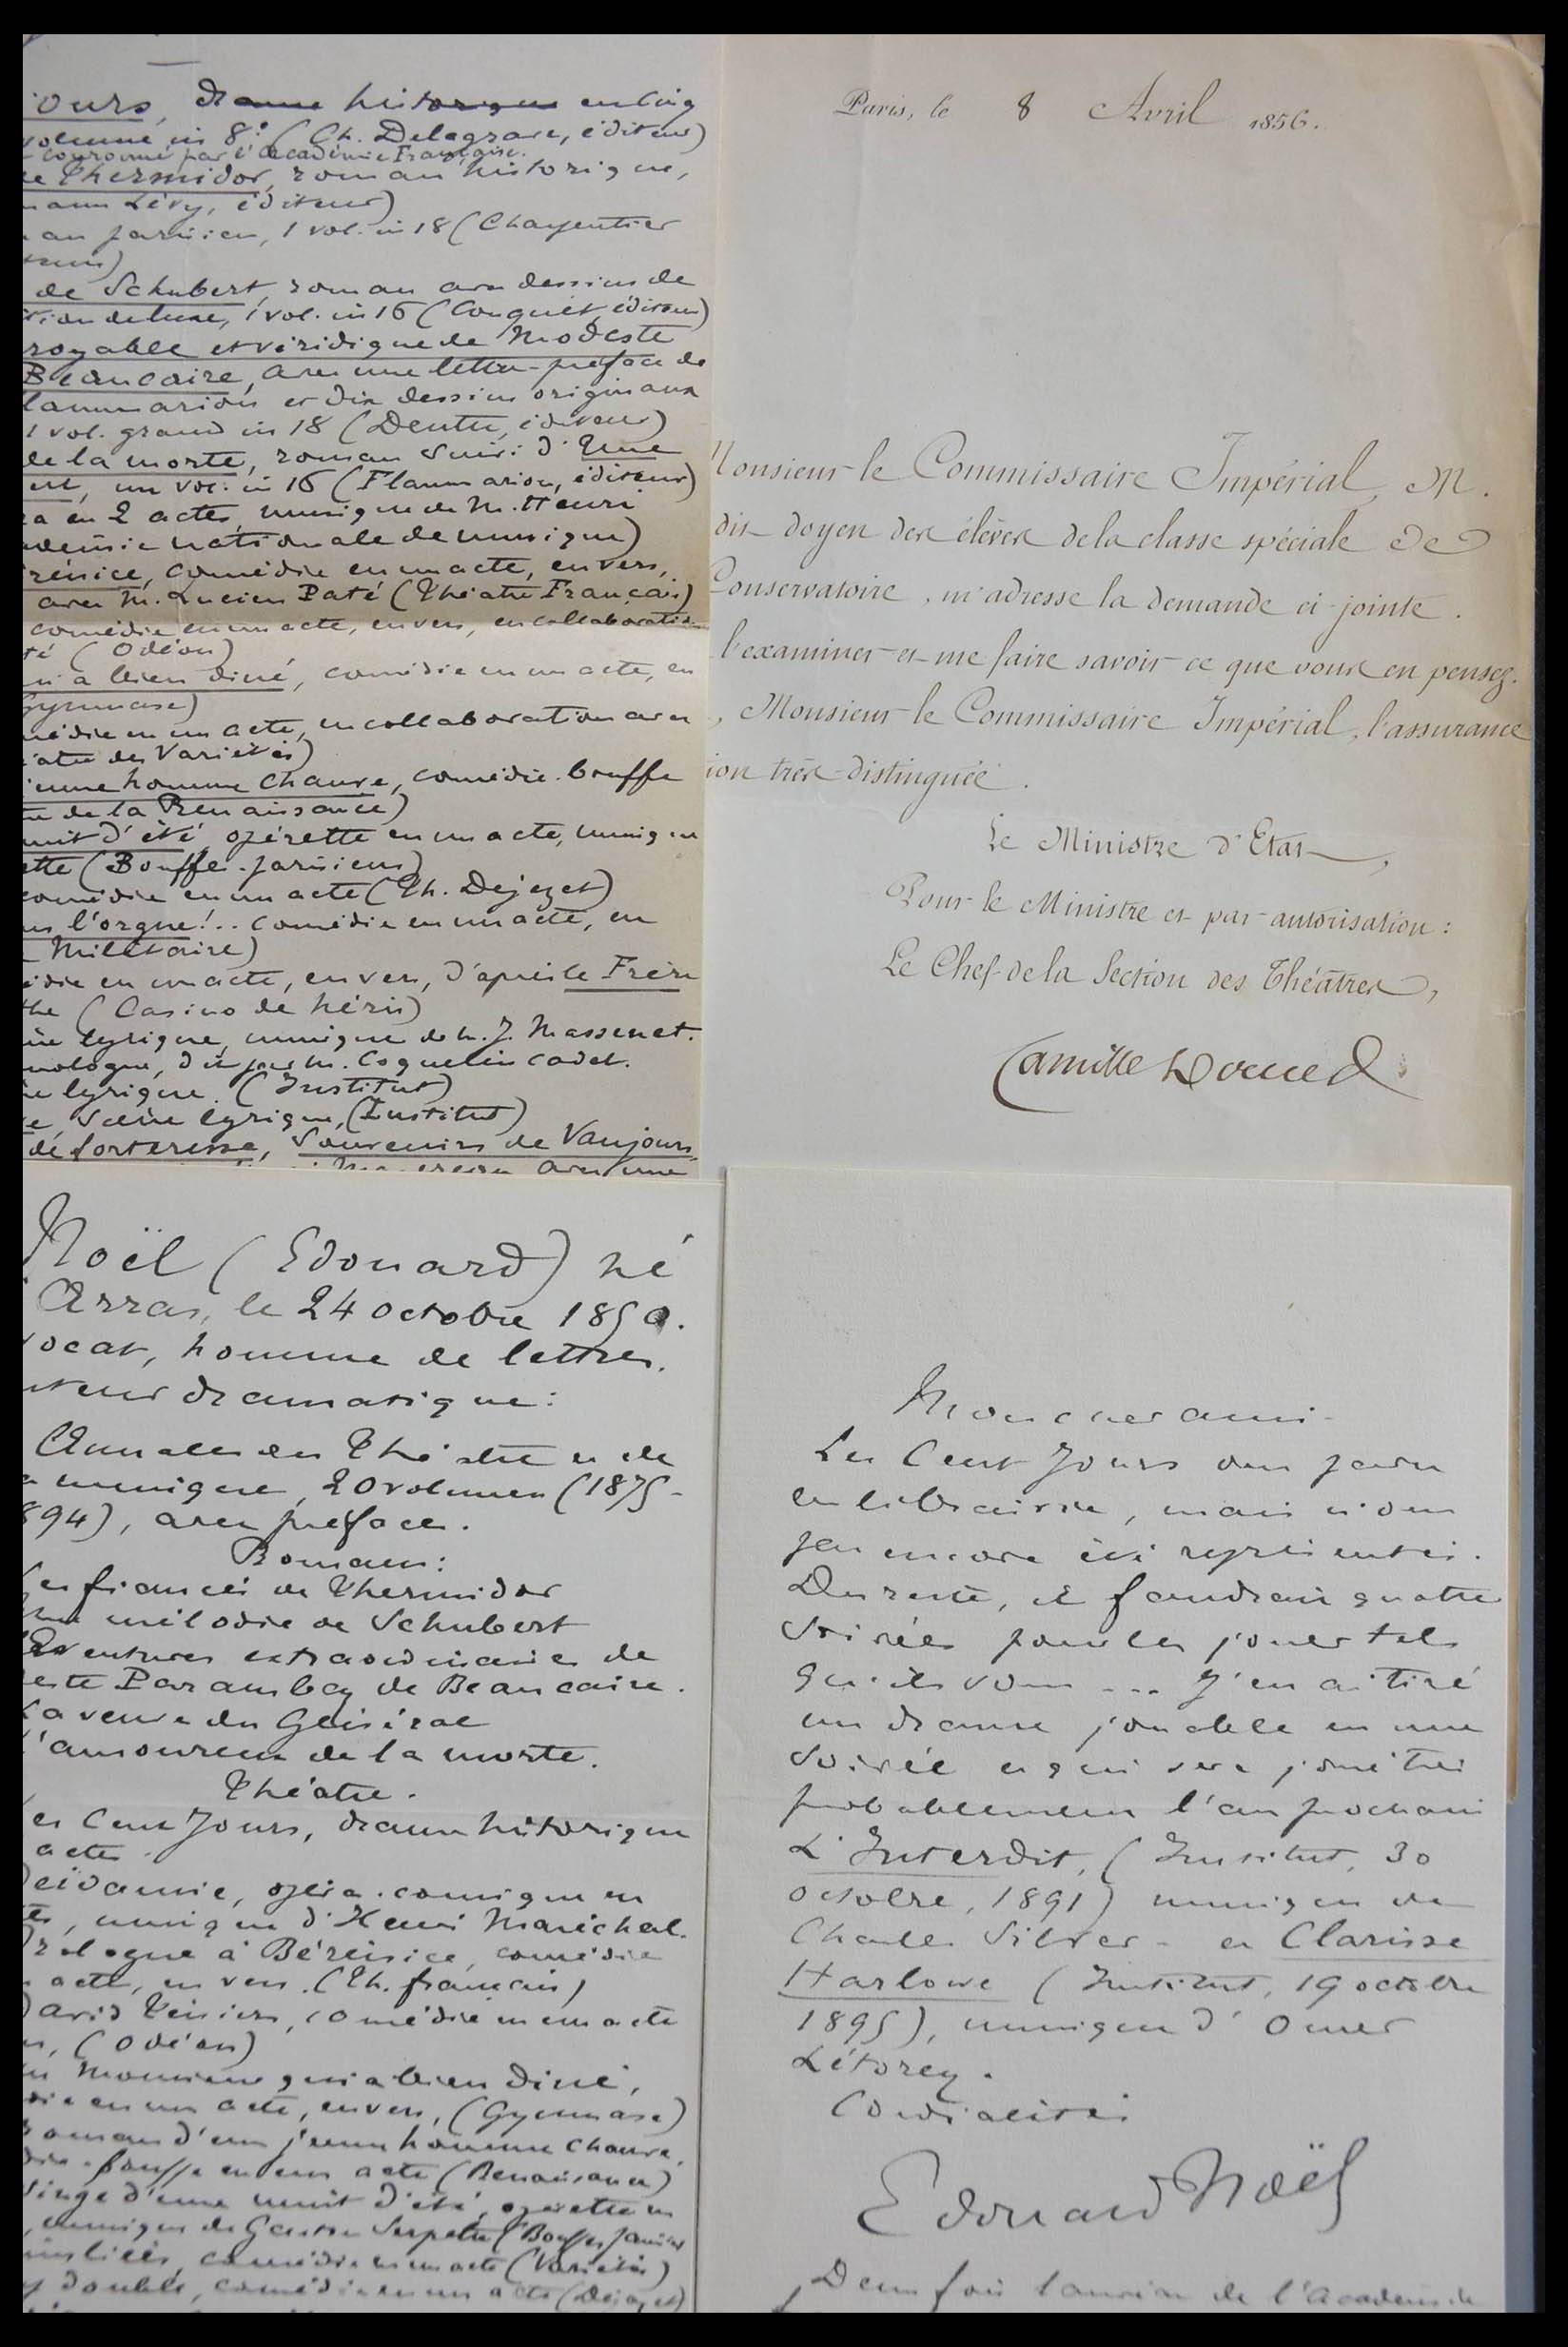 ours, drame historique en cinq
volume in 8° (Ch. Delagrave, éditeur)
couronné par l'Académie Française.
de Thermidor, roman historique,
mann Lévy, éditeur)
an parisien, 1 vol. in 18 (Charpentier
de Schubert, roman avec dessins de
tion de luxe, 1 vol. in 16 (Conquet, éditeur)
royable et véridique de Modeste
Beaucaire, avec une lettre-préface de
lammarion et dix dessins originaux
1 vol. grand in 18 (Dentu, éditeur)
de la morte, roman suivi d'Une
ert, un vol. in 16 (Flammarion, éditeur)
ra en 2 actes, musique de M. Henri
adémie nationale de musique)
rénice, comédie en un acte, en vers,
avec M. Lucien Paté (Théâtre Français)
comédie en un acte, en vers, en collaboration
té (Odéon)
ui a bien diné, comédie en un acte, en
Gymnase)
médie en un acte, en collaboration avec
âtre des Variétés)
jeune homme chauve, comédie-bouffe
re de la Renaissance)
nuit d'été, opérette en un acte, musique
ette (Bouffes-parisiens)
comédie en un acte (Th. Dejazet)
us l'orgue!.. comédie en un acte, en
Militaire)
édie en un acte, en vers, d'après le Frère
the (Casino de Néris)
ène lyrique, musique de M. J. Massenet.
nologue, dit par M. Coquelin cadet.
ne lyrique. (Institut)
e, scène lyrique, (Institut)
de forteresse, Souvenirs de Vaujours,
avec une
Paris, le 8 Avril 1856.
Monsieur le Commissaire Impérial, M.
dit doyen des élèves de la classe spéciale de
Conservatoire, m'adresse la demande ci-jointe.
l'examiner et me faire savoir ce que vous en pensez.
, Monsieur le Commissaire Impérial, l'assurance
ion très-distinguée.
Le Ministre d'Etat,
Pour le Ministre et par autorisation:
Le Chef de la Section des Théâtres,
Camille Doucet
Noël (Edouard) né
Arras, le 24 octobre 1850.
vocat, homme de lettres.
uteur dramatique:
Annales du Théâtre et de
a musique, 20 volumes (1875-
894), avec préfaces.
Romans:
Les fiancés de Thermidor
Une mélodie de Schubert
Aventures extraordinaires de
este Parambaz de Beaucaire.
La veuve du Général
L'amoureux de la morte.
Théâtre.
Les Cent Jours, drame historique
actes.
Deïdamie, opéra-comique en
tes, musique d'Henri Maréchal.
Prologue à Bérénice, comédie
acte, en vers. (Th. français)
David Téniers, comédie en un acte
rs, (Odéon)
Un Monsieur qui a bien diné,
die en un acte, en vers, (Gymnase)
Roman d'un jeune homme chauve,
die-bouffe en un acte (Renaissance)
Singe d'une nuit d'été, opérette en
, musique de Gaston Serpette (Bouffes parisiens
comédie en un acte (Variétés)
double, comédie en un acte (Dejazet)
Mon cher ami.
Les Cent Jours ont paru
en librairie, mais n'ont
pas encore été représentés.
Du reste, il faudrait quatre
soirées pour les jouer tels
qu'ils sont ... J'en ai tiré
un drame jouable en une
soirée et qui sera joué très
probablement l'an prochain
L'Interdit, (Institut, 30
octobre, 1891) musique de
Charles Silver - et Clarisse
Harlowe (Institut, 19 octobre
1895), musique d'Omer
Létorey.
Cordialités
Edouard Noël
Deux fois lauréat de l'Académie